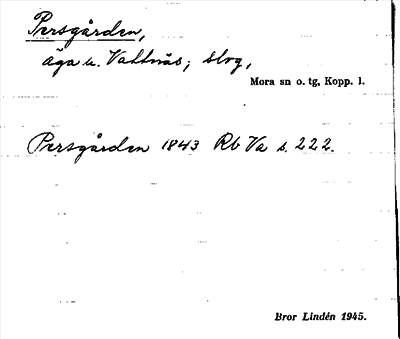 Persgården,
äga u. Vattnäs; slog,
Mora sn o. tg, Kopp. l.
Persgården 1843 Rb Va s. 222.
Bror Lindén 1945.